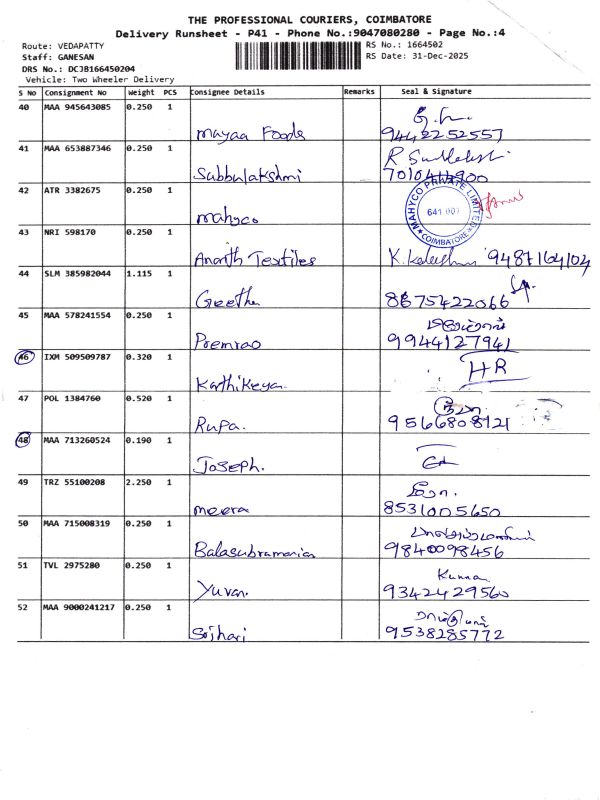 THE PROFESSIONAL COURIERS, COIMBATORE
Delivery Runsheet - P41 - Phone No.:9047080280 - Page No.:4
Route: VEDAPATTY
RS No.: 1664502
Staff: GANESAN
RS Date: 31-Dec-2025
DRS No.: DCJB166450204
Vehicle: Two Wheeler Delivery
S No Consignment No Weight PCS Consignee Details Remarks Seal & Signature
40 MAA 945643085 0.250 1
mayaa Foods 9442252557
41 MAA 653887346 0.250 1
Subbulakshmi
42 ATR 3382675 0.250 1
MAHYCO PRIVATE LIMITED
641 007
COIMBATORE
mahyco
43 NRI 598170 0.250 1
Ananth Textiles 9487164104
44 SLM 385982044 1.115 1
Geetha 8675422066
45 MAA 578241554 0.250 1
Premrao 9944127941
46 IXM 509509787 0.320 1
HR
Karthikeyan
47 POL 1384760 0.520 1
Rupa. 9566808121
48 MAA 713260524 0.190 1
Joseph.
49 TRZ 55100208 2.250 1
meera 8531005650
50 MAA 715008319 0.250 1
Balasubramanian 9840098456
51 TVL 2975280 0.250 1
Kunna
Yuvan. 9342429560
52 MAA 9000241217 0.250 1
Srihari 9538285772